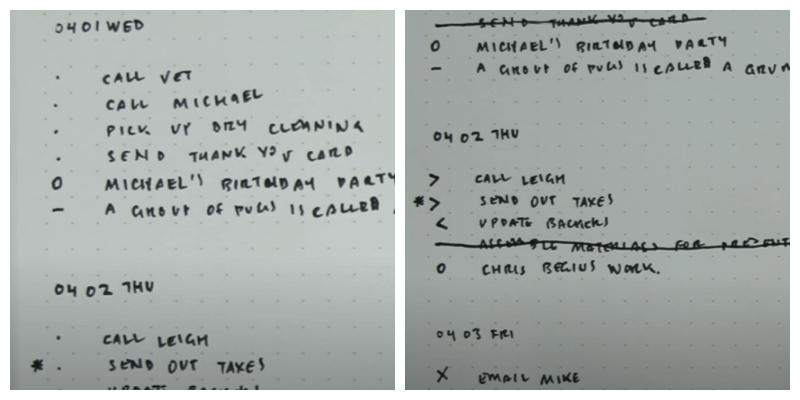 0401 WED
· CALL VET
· CALL MICHAEL
· PICK UP DRY CLEANING
· SEND THANK YOU CARD
O MICHAEL'S BIRTHDAY PARTY
– A GROUP OF PUGS IS CALLED
0402 THU
· CALL LEIGH
* · SEND OUT TAXES
UPDATE BACKUPS
SEND THANK YOU CARD
O MICHAEL'S BIRTHDAY PARTY
– A GROUP OF PUGS IS CALLED A GRUM
0402 THU
> CALL LEIGH
* > SEND OUT TAXES
< UPDATE BACKUPS
ASSEMBLE MATERIALS FOR PRESENT
O CHRIS BEGINS WORK.
0403 FRI
X EMAIL MIKE